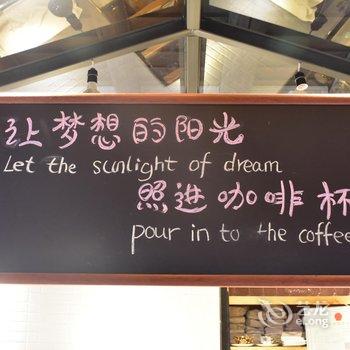 让梦想的阳光
Let the sunlight of dream
照进咖啡杯
pour in to the coffee
艺龙
eLong